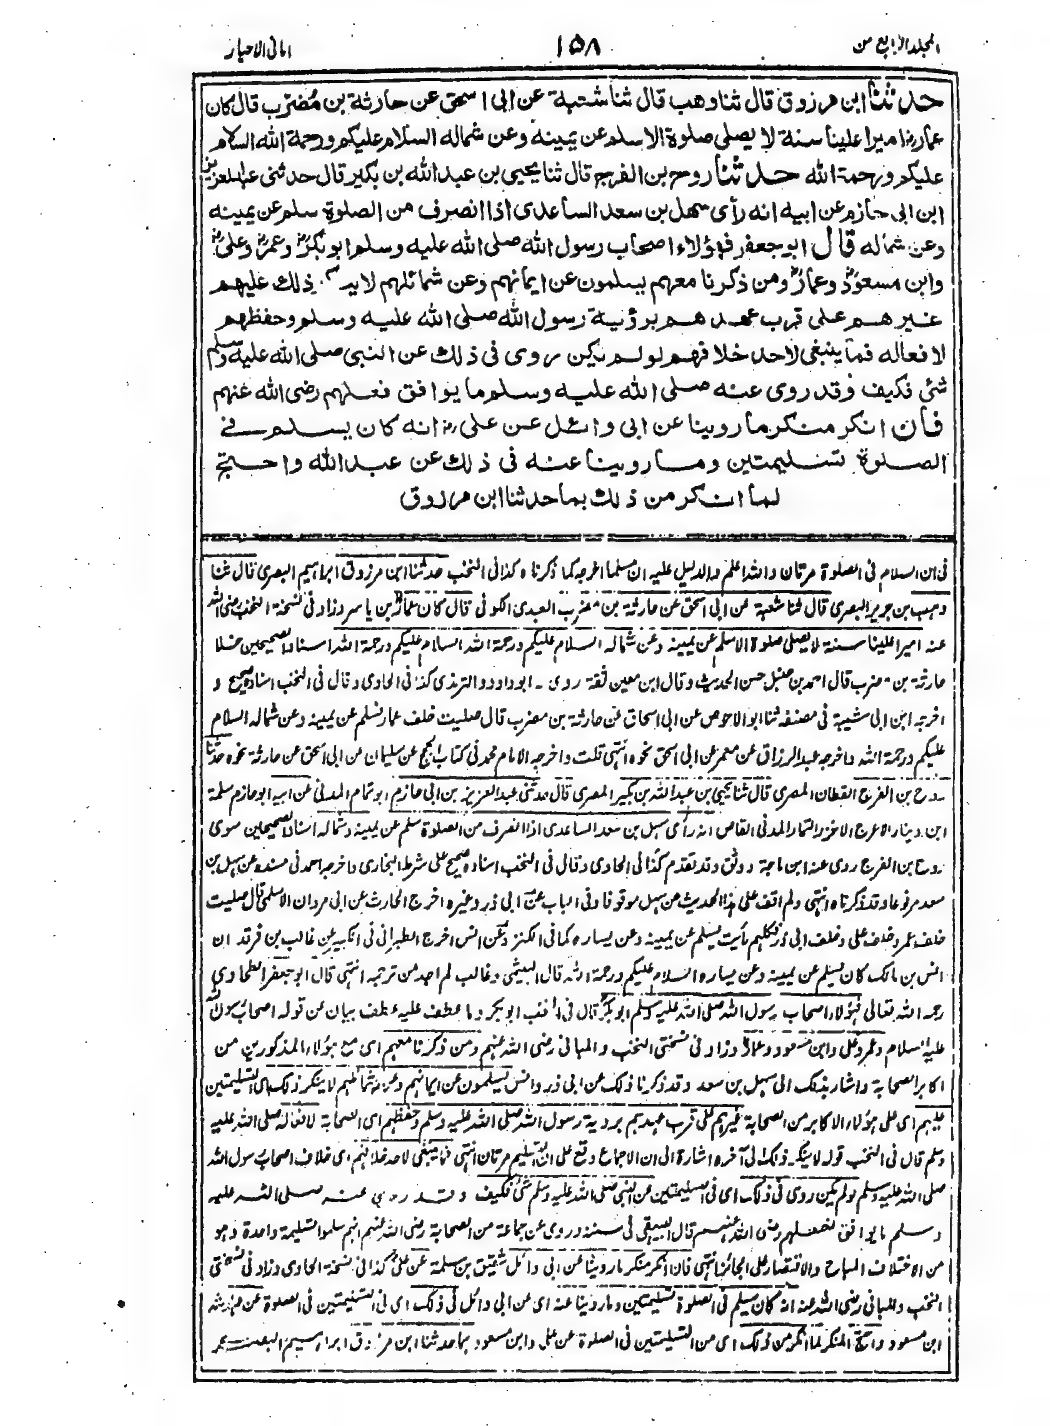 المجلد الرابع من
١٥٨
امانى الاحبار
حدثنا ابن مرزوق قال ثنا وهب قال ثنا شعبة عن ابى اسحق عن حارثة بن مضرب قال كان
عمار رضا ميرا علينا سنة لا يصلى صلوة الا سلم عن يمينه وعن شماله السلام عليكم ورحمة الله السلام
عليكم ورحمة الله حدثنا روح بن الفرج قال ثنا يحيى بن عبد الله بن بكير قال حدثنى عبد العزيز
ابن ابى حازم عن ابيه انه رأى سهل بن سعد الساعدى اذا انصرف من الصلوة سلم عن يمينه
وعن شماله قال ابو جعفر فهؤلاء اصحاب رسول الله صلى الله عليه وسلم ابو بكرؓ وعمرؓ وعلىؓ
وابن مسعودؓ وعمارؓ ومن ذكرنا معهم يسلمون عن ايمانهم وعن شمائلهم لا ينكر ذلك عليهم
غيرهم على قرب عهدهم برؤية رسول الله صلى الله عليه وسلم وحفظهم
لافعاله فما ينبغى لاحد خلافهم لو لم يكن روى فى ذلك عن النبى صلى الله عليه وسلم
شئ فكيف وقد روى عنه صلى الله عليه وسلم ما يوافق فعلهم رضى الله عنهم
فأن انكر منكر ما روينا عن ابى وائل عن علىؓ انه كان يسلم فى
الصلوة تسليمتين وما روينا عنه فى ذلك عن عبد الله واحتج
لما انكر من ذلك بما حدثنا ابن مرزوق
فى ان السلام فى الصلوة مرتان والله اعلم والدليل عليه ان مسلما اخرجه كما ذكرناه كذا فى النخب حدثنا ابن مرزوق ابراهيم البصرى قال ثنا
وهب بن جرير البصرى قال ثنا شعبة عن ابى اسحق عن حارثة بن مضرب العبدى الكوفى قال كان عمارؓ بن ياسر وزاد فى نسخة النخب رضى الله
عنه اميرا علينا سنة لا يصلى صلوة الا سلم عن يمينه وعن شماله السلام عليكم ورحمة الله السلام عليكم ورحمة الله اسناد الصحيحين خلا
حارثة بن مضرب قال احمد بن حنبل حسن الحديث وقال ابن معين ثقة روى له ابو داود والترمذى كذا فى الحاوى وقال فى النخب اسناده صحيح و
اخرجه ابن ابى شيبة فى مصنفه ثنا ابو الاحوص عن ابى اسحاق عن حارثة بن مضرب قال صليت خلف عمار فسلم عن يمينه وعن شماله السلام
عليكم ورحمة الله واخرجه عبد الرزاق عن معمر عن ابى اسحق نحوه انتهى قلت واخرجه الامام محمد فى كتاب الحجج عن سليمان عن ابى اسحق عن حارثة نحوه حدثنا
روح بن الفرج القطان المصرى قال ثنا يحيى بن عبد الله بن بكير المصرى قال حدثنى عبد العزيز بن ابى حازم ابو تمام المدنى عن ابيه ابو حازم سلمة
ابن دينار الاعرج الافزر التمار المدنى القاص انه رأى سهل بن سعد الساعدى اذا انصرف من الصلوة سلم عن يمينه وشماله اسناد الصحيحين سوى
روح بن الفرج روى عنه ابن ماجة ووثق وقد تقدم كذا فى الحاوى وقال فى النخب اسناده صحيح على شرط البخارى واخرجه احمد فى مسنده عن سهل بن
سعد مرفوعا وقد ذكرناه انتهى ولم اقف على هذا الحديث من سهل موقوفا وفى الباب عن ابى ذر وغيره اخرج الحارث عن ابى مروان الاسلمى قال صليت
خلف عمر وخلف على وخلف ابى ذر فكلهم رأيت يسلم عن يمينه وعن يساره كما فى الكنز وعن انس اخرج الطبرانى فى الكبير عن غالب بن فرقد ان
انس بن مالك كان يسلم عن يمينه وعن يساره السلام عليكم ورحمة الله قال الهيثمى وغالب لم اجد من ترجمه انتهى قال ابو جعفر الطحاوى
رحمه الله تعالى فهؤلاء اصحاب رسول الله صلى الله عليه وسلم ابو بكرؓ قال فى النخب ابو بكر وما عطف عليه عطف بيان عن قوله اصحاب رسول الله
عليه السلام وعمر وعلى وابن مسعود وعمار وزاد فى نسختى النخب والمبانى رضى الله عنهم ومن ذكرنا معهم اى مع هؤلاء المذكورين من
اكابر الصحابة واشار بذلك الى سهل بن سعد وقد ذكرنا ذلك عن ابى ذر وانس يسلمون عن ايمانهم وعن شمائلهم لا ينكر ذلك اى التسليمتين
عليهم اى على هؤلاء الاكابر من الصحابة غيرهم على قرب عهدهم برؤية رسول الله صلى الله عليه وسلم وحفظهم اى الصحابة لافعاله صلى الله عليه
وسلم قال فى النخب قوله لا ينكر ذلك الى آخره اشارة الى ان الاجماع وقع على ان التسليم مرتان انتهى فما ينبغى لاحد خلافهم اى خلاف اصحاب رسول الله
صلى الله عليه وسلم لو لم يكن روى فى ذلك اى فى التسليمتين عن النبى صلى الله عليه وسلم شئ فكيف وقد روى عنه صلى الله عليه
وسلم ما يوافق فعلهم رضى الله عنهم قال البيهقى فى سننه وروى عن جماعة من الصحابة رضى الله عنهم انهم سلموا تسليمة واحدة وهو
من الاختلاف المباح والاقتصار على الجائز انتهى فان انكر منكر ما روينا عن ابى وائل شقيق بن سلمة عن علىؓ كذا فى نسخة الحاوى وزاد فى نسختى
النخب والمبانى رضى الله عنه انه كان يسلم فى الصلوة تسليمتين وما روينا عنه اى عن ابى وائل فى ذلك اى فى التسليمتين فى الصلوة عن عبد الله
ابن مسعود واحتج المنكر لما انكر من ذلك اى من التسليمتين فى الصلوة عن على وابن مسعود بما حدثنا ابن مرزوق ابراهيم البصرى